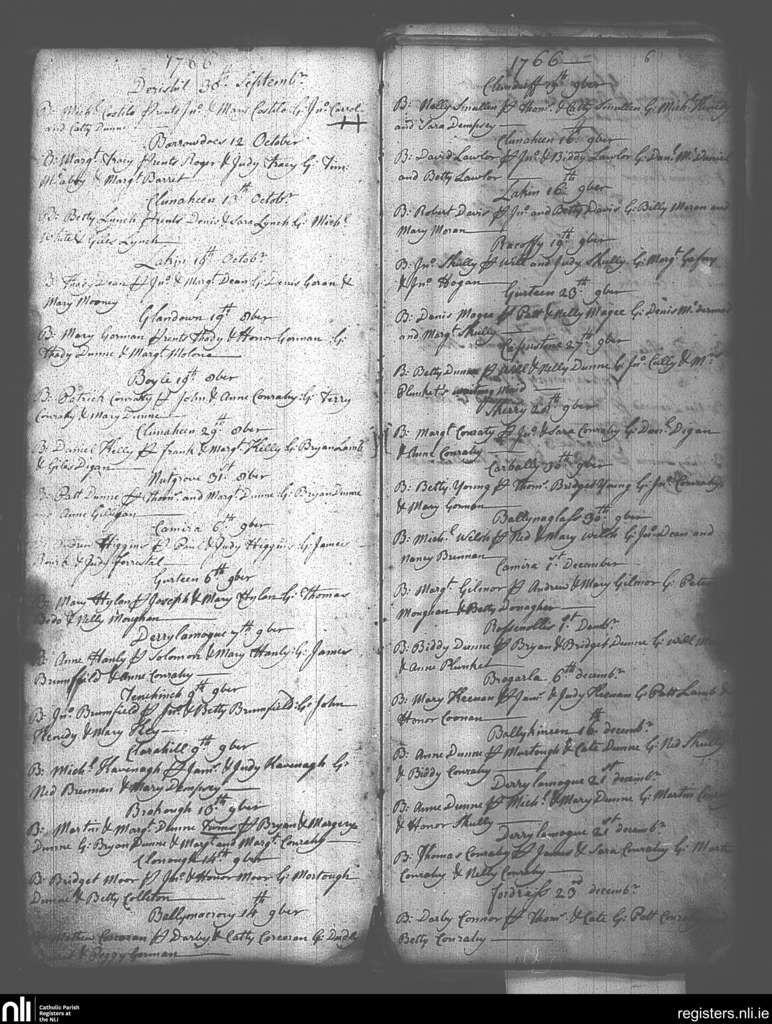 1766
Derishil 30th Septembr
B: Michl Costilo Prents Jno & Mary Costilo G: Jno Carol
and Catty Dunne
Barrowdoes 12 October
B: Margt Tracy Prents Roger & Judy Tracy G: Tim:
McAbby & Margt Barret
Clunaheen 13th Octobr
B: Betty Lynch Prents Denis & Sara Lynch G: Michl
White & Giles Lynch
Lakin 15th Octobr
B: Thady Dean P Jno & Margt Dean G: Denis Goran &
Mary Mooney
Glandown 19th 8ber
B: Mary Gorman Prents Thady & Honor Gorman G:
Thady Dunne & Margt Molone
Boyle 19th 8ber
B: Patrick Conraby P John & Anne Conraby: G: Terry
Conraby & Mary Dunne
Clunaheen 29th 8ber
B: Daniel Kelly P Frank & Margt Kelly G: Bryan Lamb
& Giles Digan
Nutgrove 31st 8ber
B: Patt Dunne P Thoms and Margt Dunne G: Bryan Dunne
Anne Geligan
Camira 6th 9ber
Higgins P Paul & Judy Higgins G: James
& Judy Forrestal
Gurteen 6th 9ber
B: Mary Hylon P Joseph & Mary Hylon G: Thomas
Bodo & Nelly Monghan
Derrylamogue 7th 9ber
B: Anne Hanly P Solomon & Mary Hanly: G: James
Brumfield & Anne Conraby
Tenehinch 9th 9ber
B: Jno Brumfield P Jno & Betty Brumfield: G: John
Kenidy & Mary Key
Clarahill 9th 9ber
B: Michl Kavenagh P Jams & Judy Kavenagh G:
Ned Brennan & Mary Dempsey
Brohough 10th 9ber
B: Martin & Margt Dunne Twins P Bryan & Margery
Dunne G: Bryan Dunne & Margt and Margt Conraby
Clonough 14th 9ber
B: Bridget Moor P Jno & Honor Moor G: Mortough
Dunne & Betty Colleton
Ballymacrory 14th 9ber
Mathew Corcoran P Darby & Catty Corcoran G: Dudly
& Peggy Gorman
1766 6
Clunduff 9th 9ber
B: Nelly Smullen P Thoms & Catty Smullen G: Michl Kenedy
and Sara Dempsey
Clunaheen 16th 9ber
B: David Lawlor P Jno & Biddy Lawlor G: Danl McDaniel
and Betty Lawlor
Lakin 16th 9ber
B: Robert Davis P Jno and Betty Davis G: Billy Moran and
Mary Moran
Racoffy 19th 9ber
B: Jno Skully P Will and Judy Skully G: Margt Gafny
& Jno Hogan
Gurteen 23d 9ber
B: Denis Magee P Patt & Nelly Magee G: Denis McDermod
and Margt Skully
27th 9ber
B: Betty Dunne P Will & Nelly Dunne G: Jno Cally & Mrs
Plunket's waiting Maid
Skerry 28th 9ber
B: Margt Conraty P Jno & Sara Conraby G: Danl Digan
& Anne Conraby
Carbally 30th 9ber
B: Betty Young P Thoms Bridget Young G: Jno Conraby
& Mary Gorman
Ballynaglass 30th 9ber
B: Michl Welsh P Ned & Mary Welsh G: Jno Deen and
Nancy Brennan
Camira 1st December
B: Margt Gilmor P Andrew & Mary Gilmor G: Peter
Monghan & Betty Donagher
Rossenollis 1st Decmbr
B: Biddy Dunne P Bryan & Bridget Dunne G: Will
& Anne Plunket
Bregarla 6th decembr
B: Mary Keenan P Jams & Judy Keenan G: Patt Lamb &
Honor Coonan
Ballykineen 16th decembr
B: Anne Dunne P Mortough & Cate Dunne G: Ned Skully
& Biddy Conraby
Derrylamogue 21st decembr
B: Anne Dunne P Michl & Mary Dunne G: Martin
& Honor Skully
Derrylamogue 21st decembr
B: Thomas Conraby P James & Sara Conraby G: Martin
Conraby & Nelly Conraby
23d decembr
B: Darby Connor P Thoms & Cate G: Patt Conraby
Betty Conraby
nli
Catholic Parish
Registers at
the NLI
registers.nli.ie